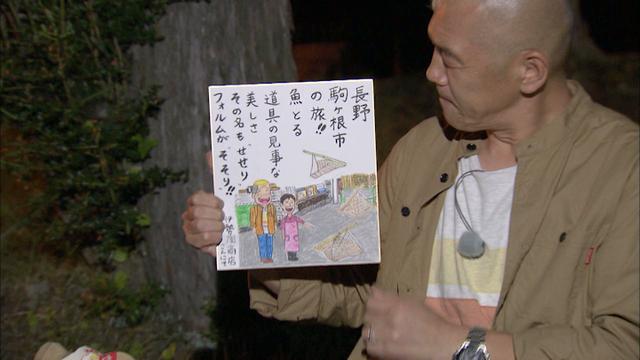 長野
駒ヶ根市
の旅!!
魚とる
道具の見事な
美しさ
その名も"せせり"
フォルムが"そそり"!!